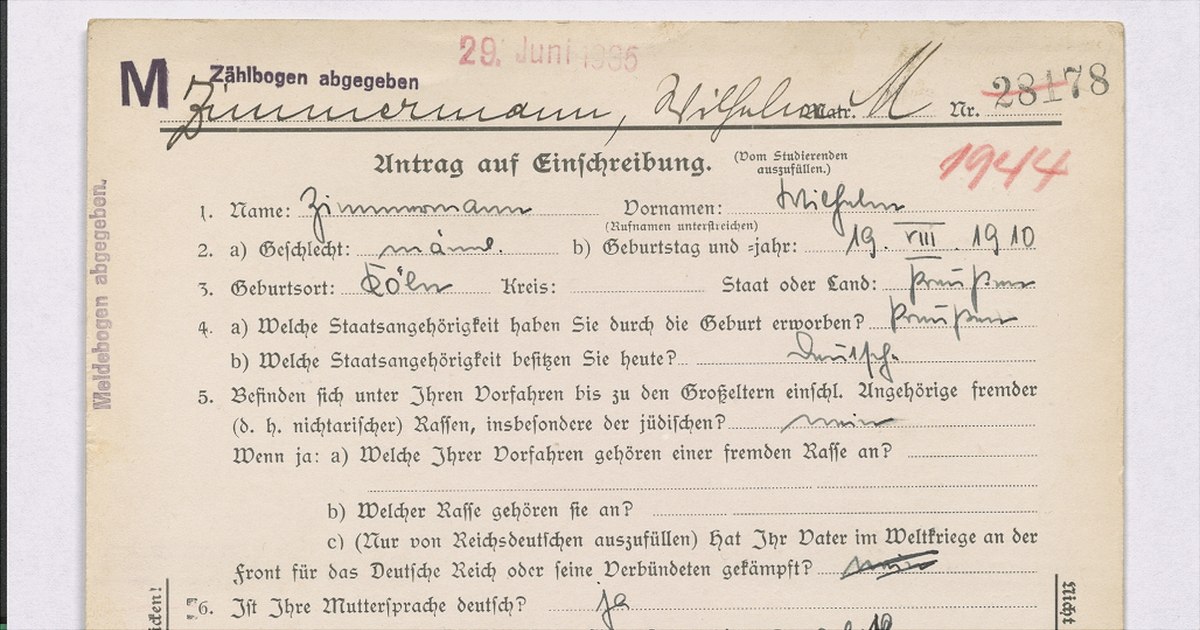 29. Juni 1935
M Zählbogen abgegeben
Zimmermann, Wilhelm Matr. M Nr. 28178
Antrag auf Einschreibung. (Vom Studierenden auszufüllen.)
1944
1. Name: Zimmermann Vornamen: Wilhelm
(Rufnamen unterstreichen)
2. a) Geschlecht: männl. b) Geburtstag und =jahr: 19. VIII. 1910
3. Geburtsort: Köln Kreis: Staat oder Land: Preußen
4. a) Welche Staatsangehörigkeit haben Sie durch die Geburt erworben? Preußen
b) Welche Staatsangehörigkeit besitzen Sie heute? Deutsch.
5. Befinden sich unter Ihren Vorfahren bis zu den Großeltern einschl. Angehörige fremder
(d. h. nichtarischer) Rassen, insbesondere der jüdischen? nein
Wenn ja: a) Welche Ihrer Vorfahren gehören einer fremden Rasse an?
b) Welcher Rasse gehören sie an?
c) (Nur von Reichsdeutschen auszufüllen) Hat Ihr Vater im Weltkriege an der
Front für das Deutsche Reich oder seine Verbündeten gekämpft? nein
6. Ist Ihre Muttersprache deutsch? ja
Meldebogen abgegeben.
Nicht